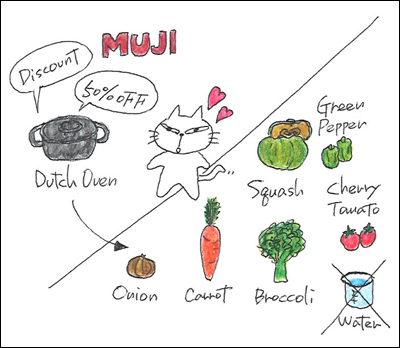 MUJI
Discount
50% OFF
Dutch Oven
Green
Pepper
Squash
Cherry
Tomato
Onion
Carrot
Broccoli
Water